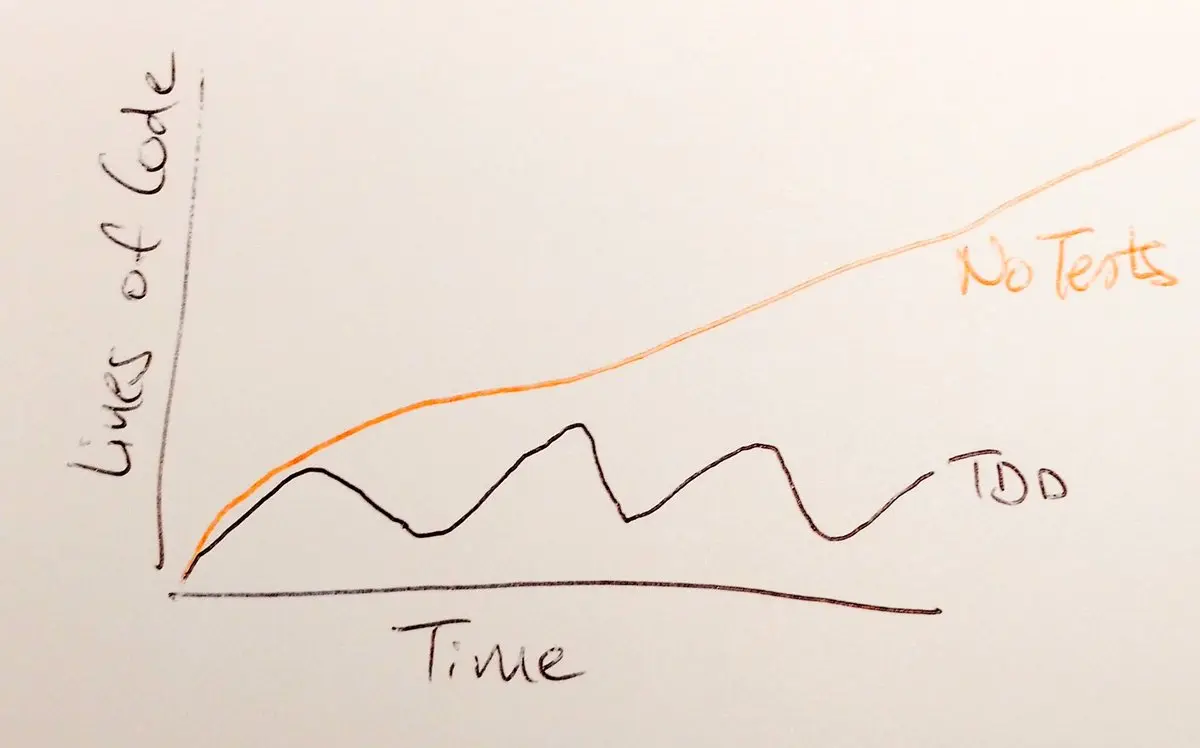 Lines of Code
No Tests
TDD
Time